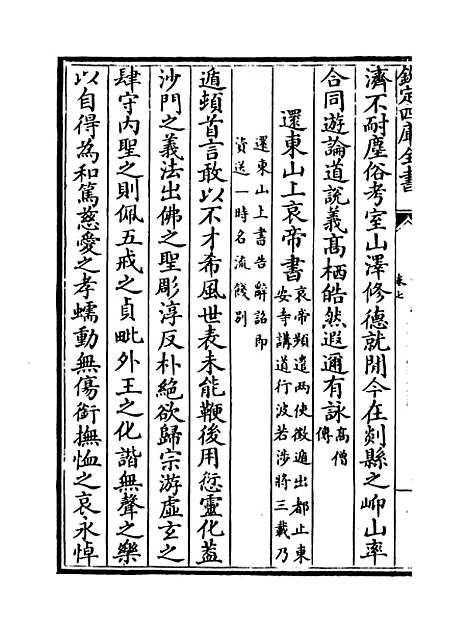 欽定四庫全書
卷七
濟不耐塵俗考室山澤修德就閒今在剡縣之岇山率
合同遊論道說義髙栖皓然遐邇有詠髙僧傳
還東山上哀帝書哀帝頻遣兩使徵遁出都止東安寺講道行波若涉將三載乃
還東山上書告辭詔即資送一時名流餞别
遁頓首言敢以不才希風世表未能鞭後用愆靈化葢
沙門之義法出佛之聖彫淳反朴絕欲歸宗游虛玄之
肆守内聖之則佩五戒之貞毗外王之化諧無聲之樂
以自得為和篤慈愛之孝蠕動無傷銜撫恤之哀永悼